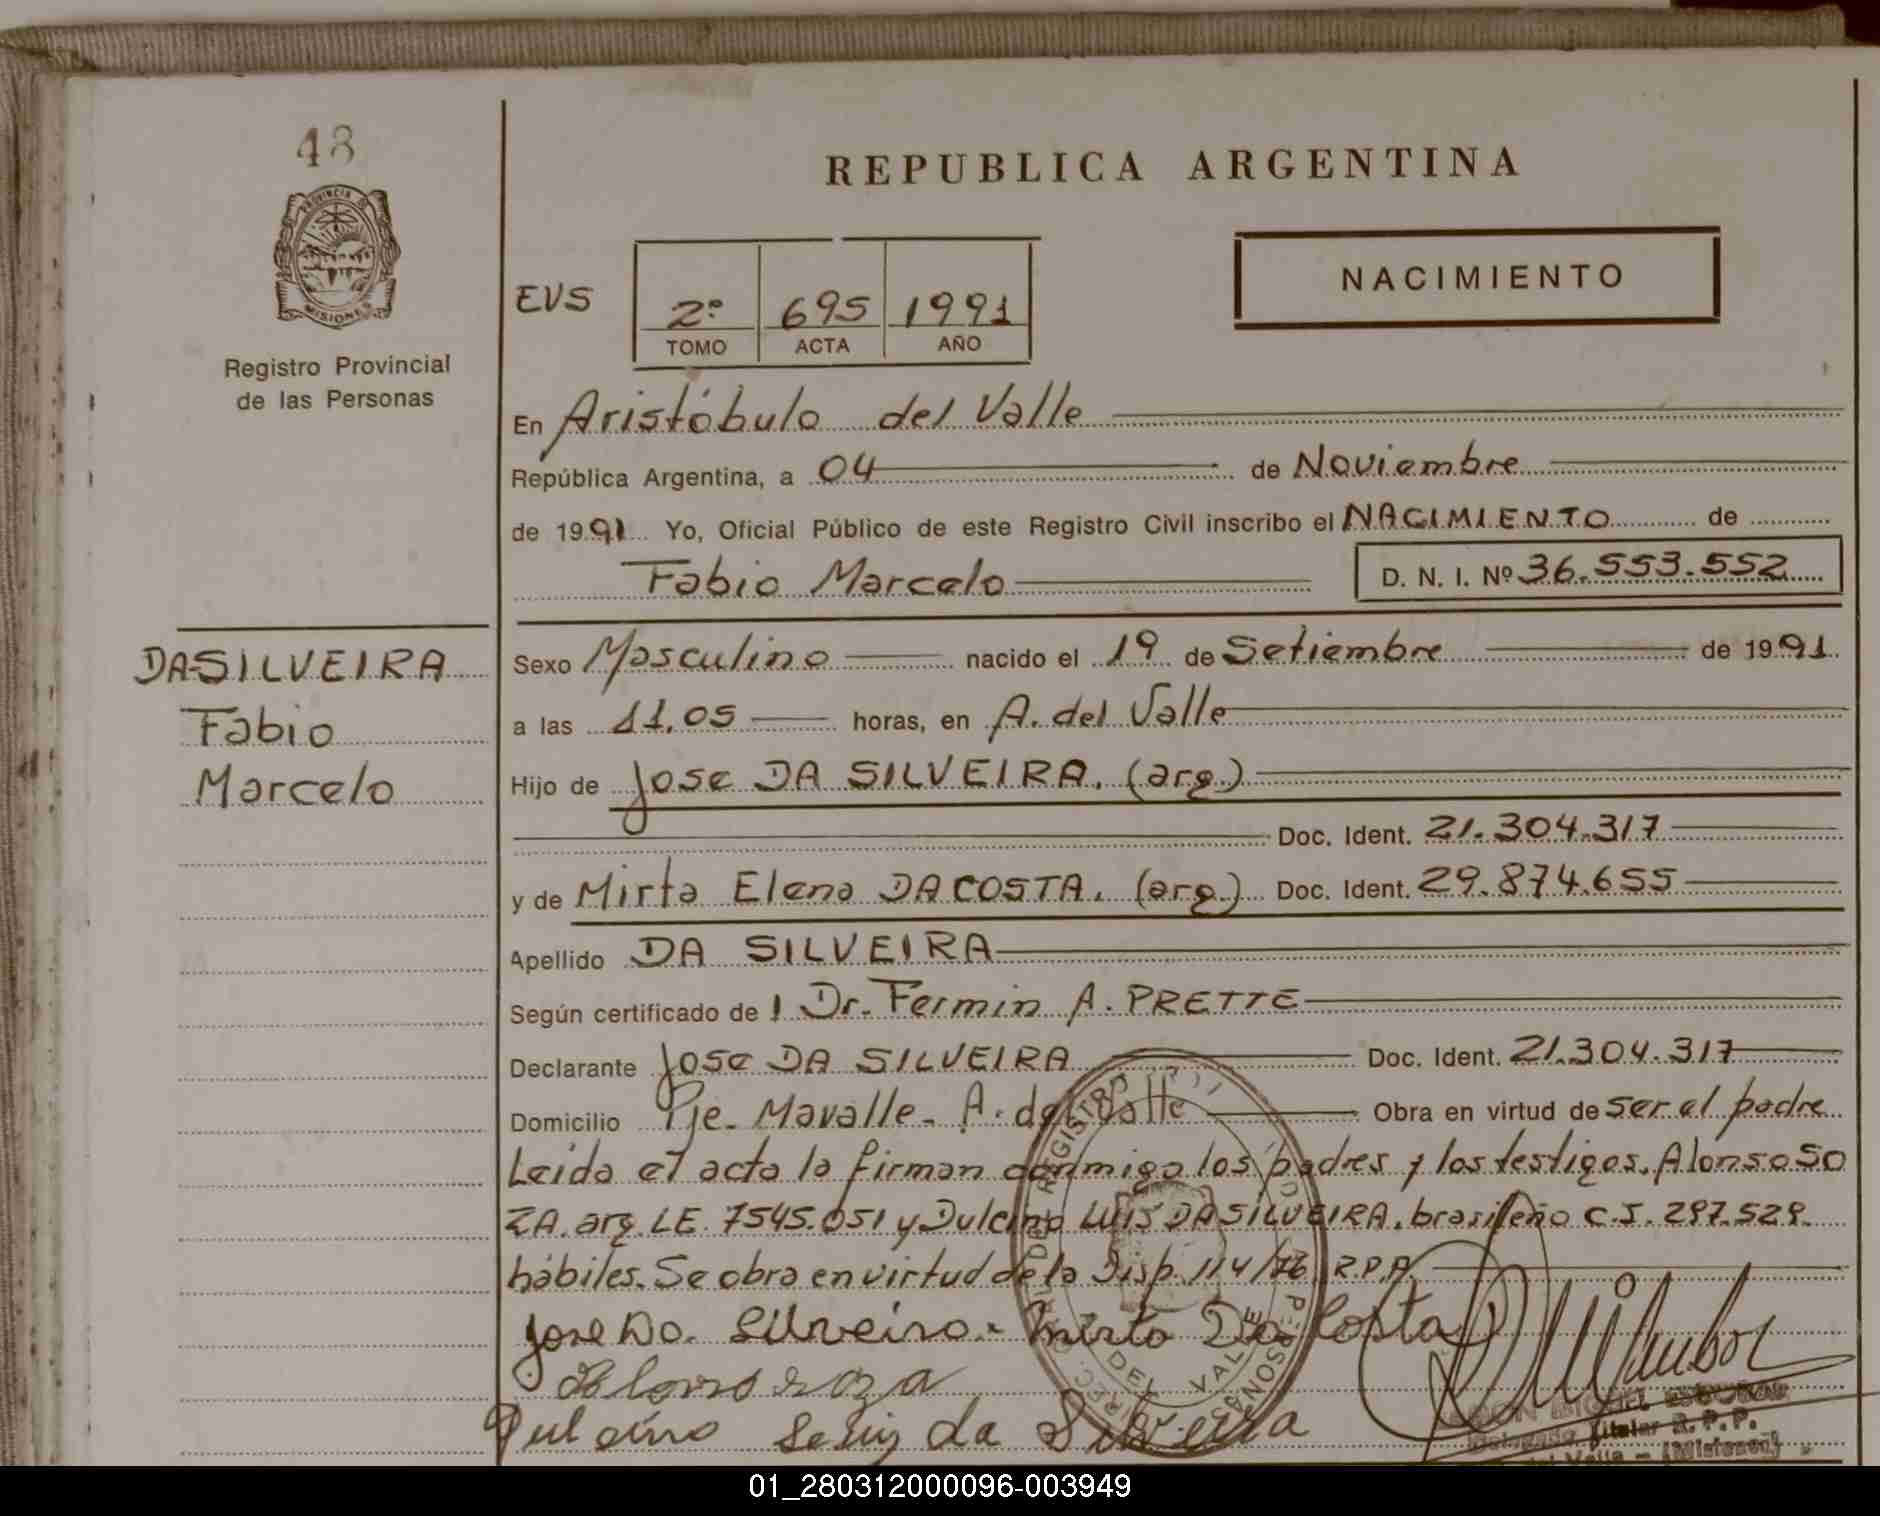 48
PROVINCIA DE
MISIONES
Registro Provincial
de las Personas
DA SILVEIRA
Fabio
Marcelo
REPUBLICA ARGENTINA
EVS
2º 695 1991
TOMO ACTA AÑO
NACIMIENTO
En Aristóbulo del Valle
República Argentina, a 04 de Noviembre
de 1991 Yo, Oficial Público de este Registro Civil inscribo el NACIMIENTO de
Fabio Marcelo D. N. I. Nº 36.553.552
Sexo Masculino nacido el 19 de Setiembre de 1991
a las 11.05 horas, en A. del Valle
Hijo de Jose DA SILVEIRA. (arg.)
Doc. Ident. 21.304.317
y de Mirta Elena DA COSTA. (arg.) Doc. Ident. 29.874.655
Apellido DA SILVEIRA
Según certificado de l Dr. Fermin A. PRETTE
Declarante Jose DA SILVEIRA Doc. Ident. 21.304.317
Domicilio Pje. Mavalle - A. del Valle Obra en virtud de ser el padre
Leida el acta la firman conmigo los padres y los testigos. Alonso SO
ZA. arg. L.E. 7545.051 y Dulcino LUIS DA SILVEIRA. brasileño C.I. 297.529.
hábiles. Se obra en virtud de la Disp. 114/76 R.P.P.
Jose Da Silveira. Mirta Da Costa
Alonso soza
Dulcino da Silveira
REGISTRO
DEL VALLE
PERSONAS
MIGUEL ESCOBAR
Delegado Titular R. P. P.
del Valle - (Misiones)
01_280312000096-003949